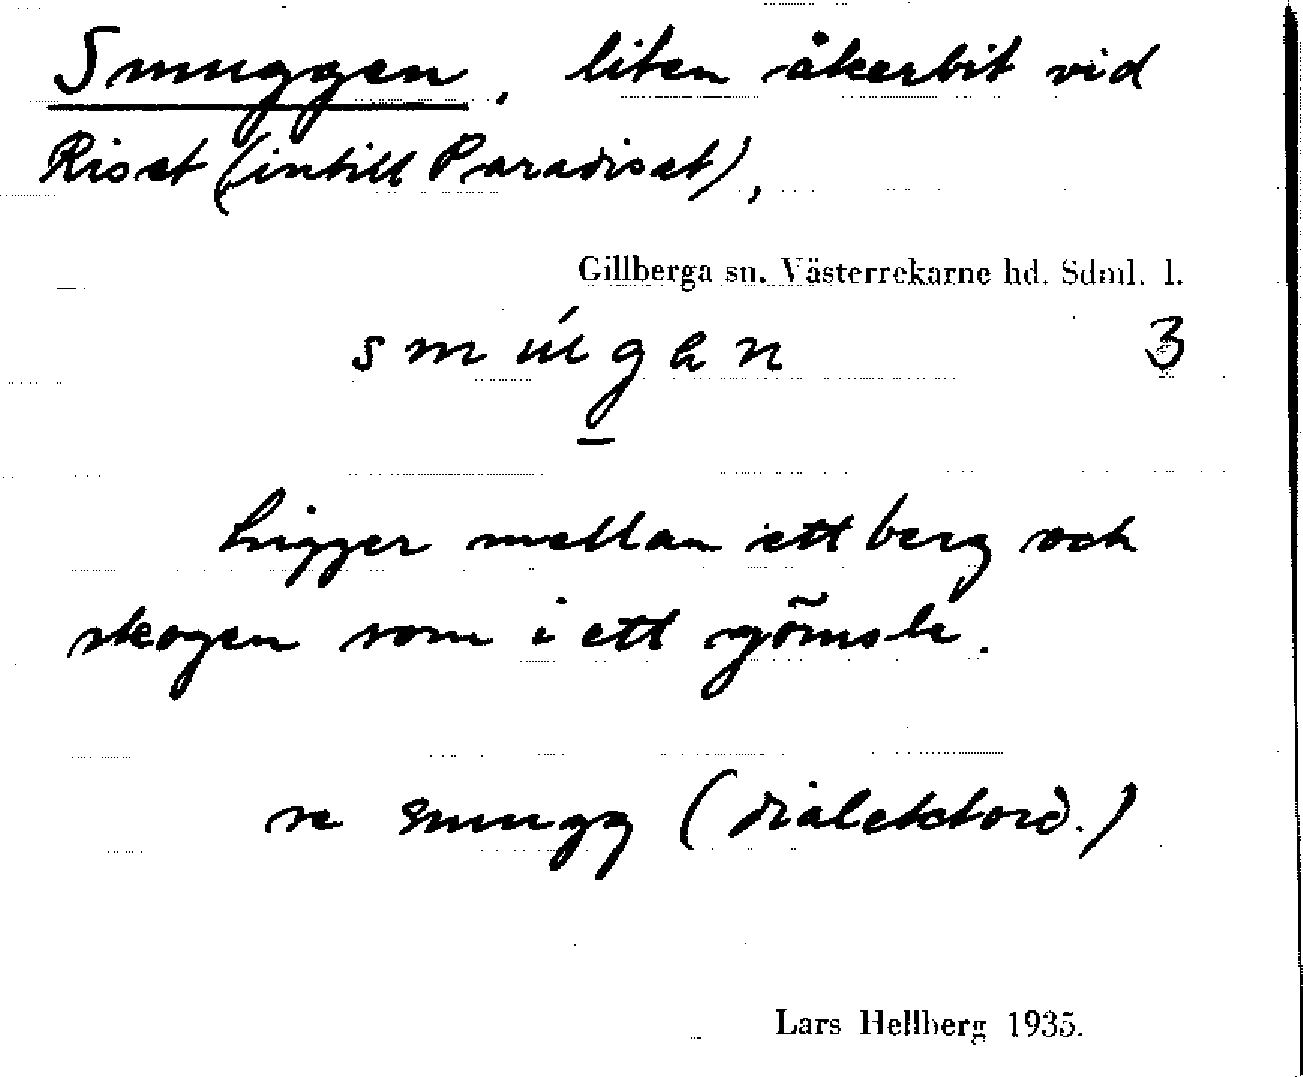 Smuggen, liten åkerbit vid
Riset (intill Paradiset),
Gillberga sn. Västerrekarne hd. Sdml. l.
smúgan 3
Ligger mellan ett berg och
skogen som i ett gömsle.
se smugg (dialektord.)
Lars Hellberg 1935.